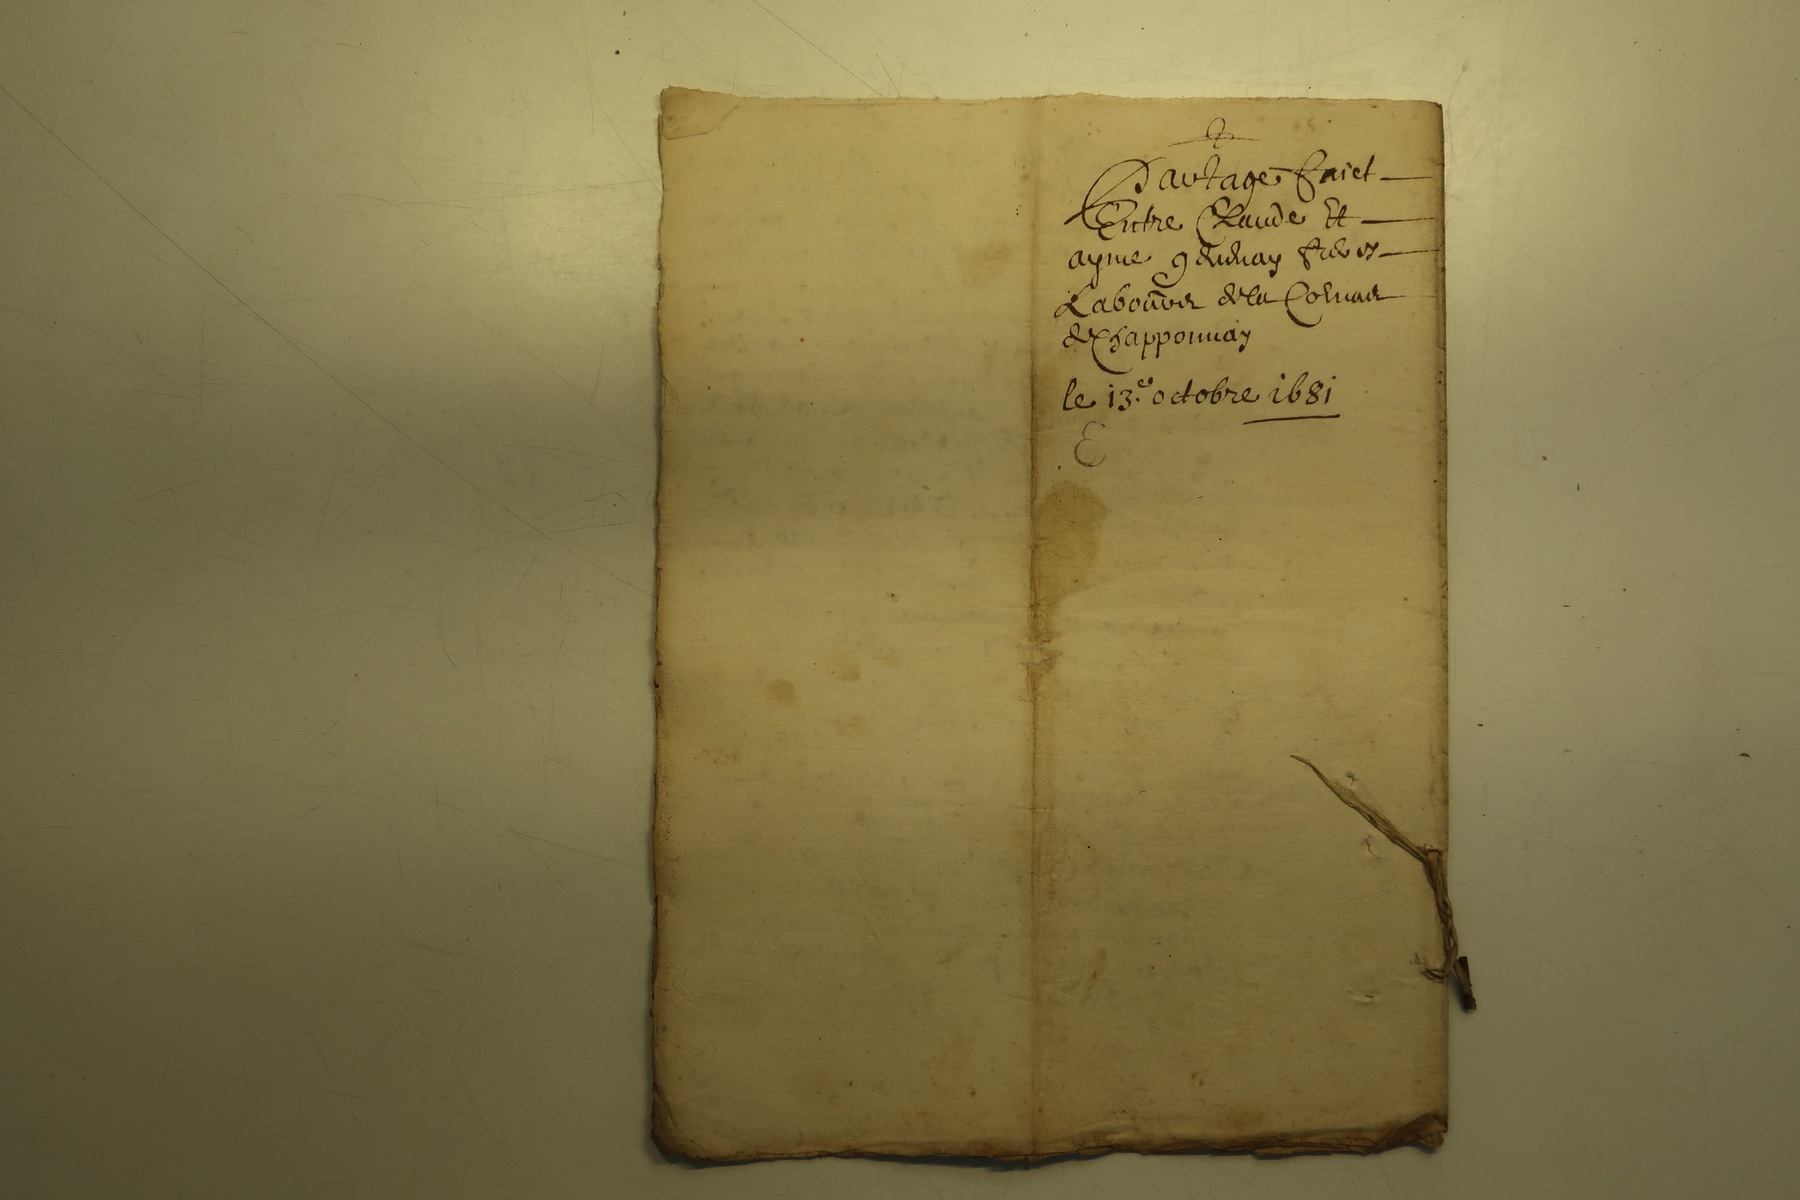 Partage faict
Entre Claude Et
ayme freres
Laboure de la
de Chapponnay
le 13.e octobre 1681